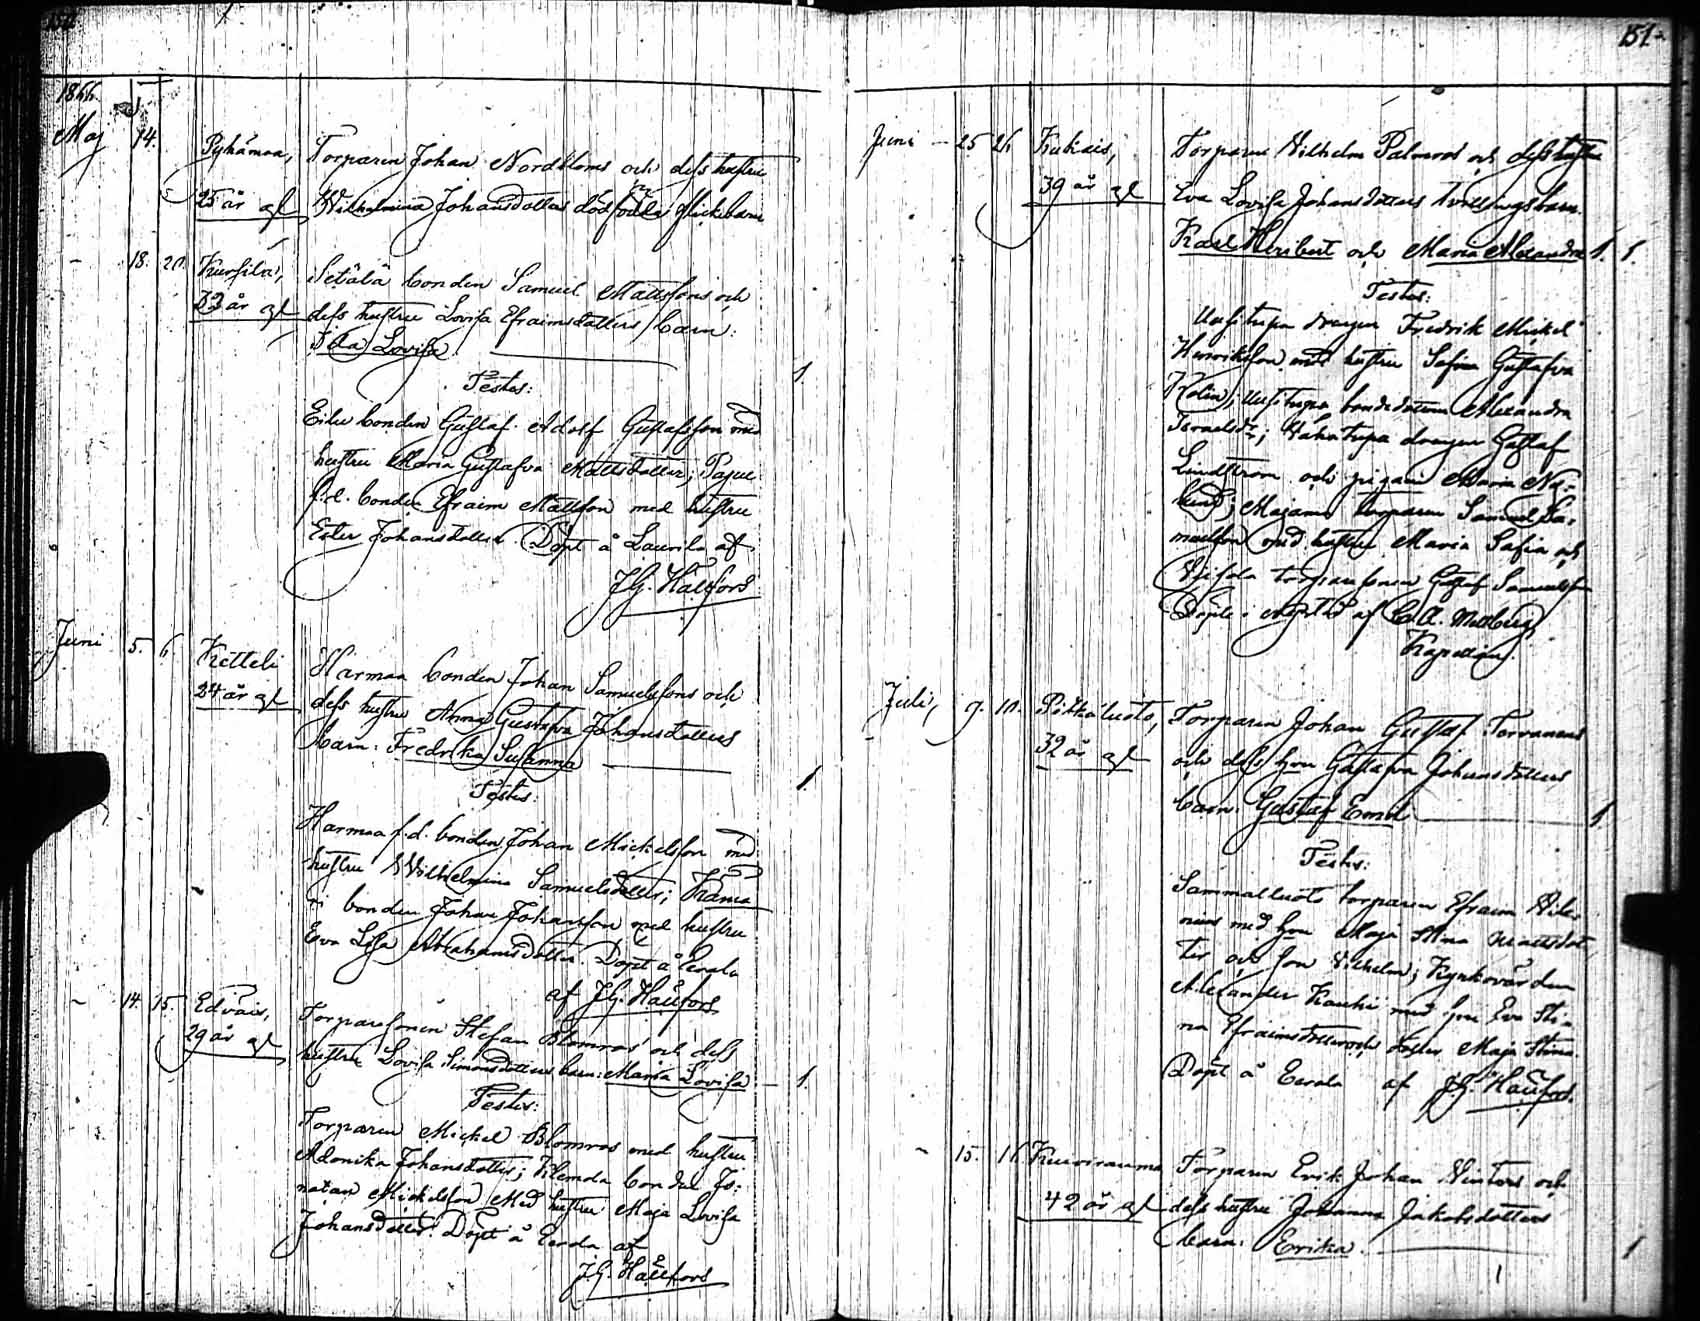 151.
1866.
Maj 14. Pyhämaa, Torparen Johan Nordbloms och dess hustru
25 år gl Wilhelmina Johansdotters dödfödda flickebarn
18. 20. Kursila, Setälä bonden Samuel Mattssons och
33 år gl dess hustru Lovisa Efraimsdotters barn:
Ida Lovisa. 1.
Testes:
Eilu bonden Gustaf Adolf Gustafsson med
hustru Maria Gustafva Mattsdotter;
f.d. bonden Efraim Mattsson med hustru
Ester Johansdotter. Döpt å Laurila af
J.G. Hällfors
Juni 5. 6. Ketteli Harmaa bonden Johan Samuelssons och
24 år gl dess hustru Anna Gustafva Johansdotters
barn: Fredrika Susanna 1.
Testes:
Harmaa f.d. bonden Johan Mickelsson med
hustru Wilhelmina Samuelsdotter;
bonden Johan Johansson med hustru
Eva Lisa Abrahamsdotter. Döpt å Eerola
af J.G. Hällfors
14. 15. Edväis, Torparesonen Stefan Blomros och dess
29 år gl hustru Lovisa Simonsdotters barn: Maria Lovisa 1.
Testes:
Torparen Mickel Blomros med hustru
Adonika Johansdotter; Klemola bonden Jo-
natan Mickelsson med hustru Maja Lovisa
Johansdotter. Döpt å Eerola af
J.G. Hällfors
Juni 25 26 Kukais, Torparen Vilhelm Palmros och dess hustru
39 år gl Eva Lovisa Johansdotters tvillingsbarn
Karl Heribert och Maria Alexandra 1. 1.
Testes:
drengen Fredrik Mickel
Henriksson med hustru Sofia Gustafva
bondedottern Alexandra
Israelsdr; drengen Gustaf
Lundström och pigan Maria
torparen Samuel Sa-
muelsson med hustru Maria Sofia och
torparesonen Gustaf Samuelsson
Döpte i af
Kapellan.
Juli, 9. 10. Pitkäluoto, Torparen Johan Gustaf Torvanens
32 år gl och dess hru Gustafva Johansdotters
barn: Gustaf Emil 1.
Testes:
Sammalluoto torparen Efraim
med hru Maja Stina Mattsdot-
ter och son Vilhelm; Kyrkovärden
Alexander Kauhi med hru Eva Sti-
na Efraimsdotter och dotter Maja Stina.
Döpt å Eerola af J.G. Hällfors.
15. 16. Kuivirauma Torparen Erik Johan Winters och
42 år gl dess hustru Johanna Jakobsdotters
barn: Erika. 1